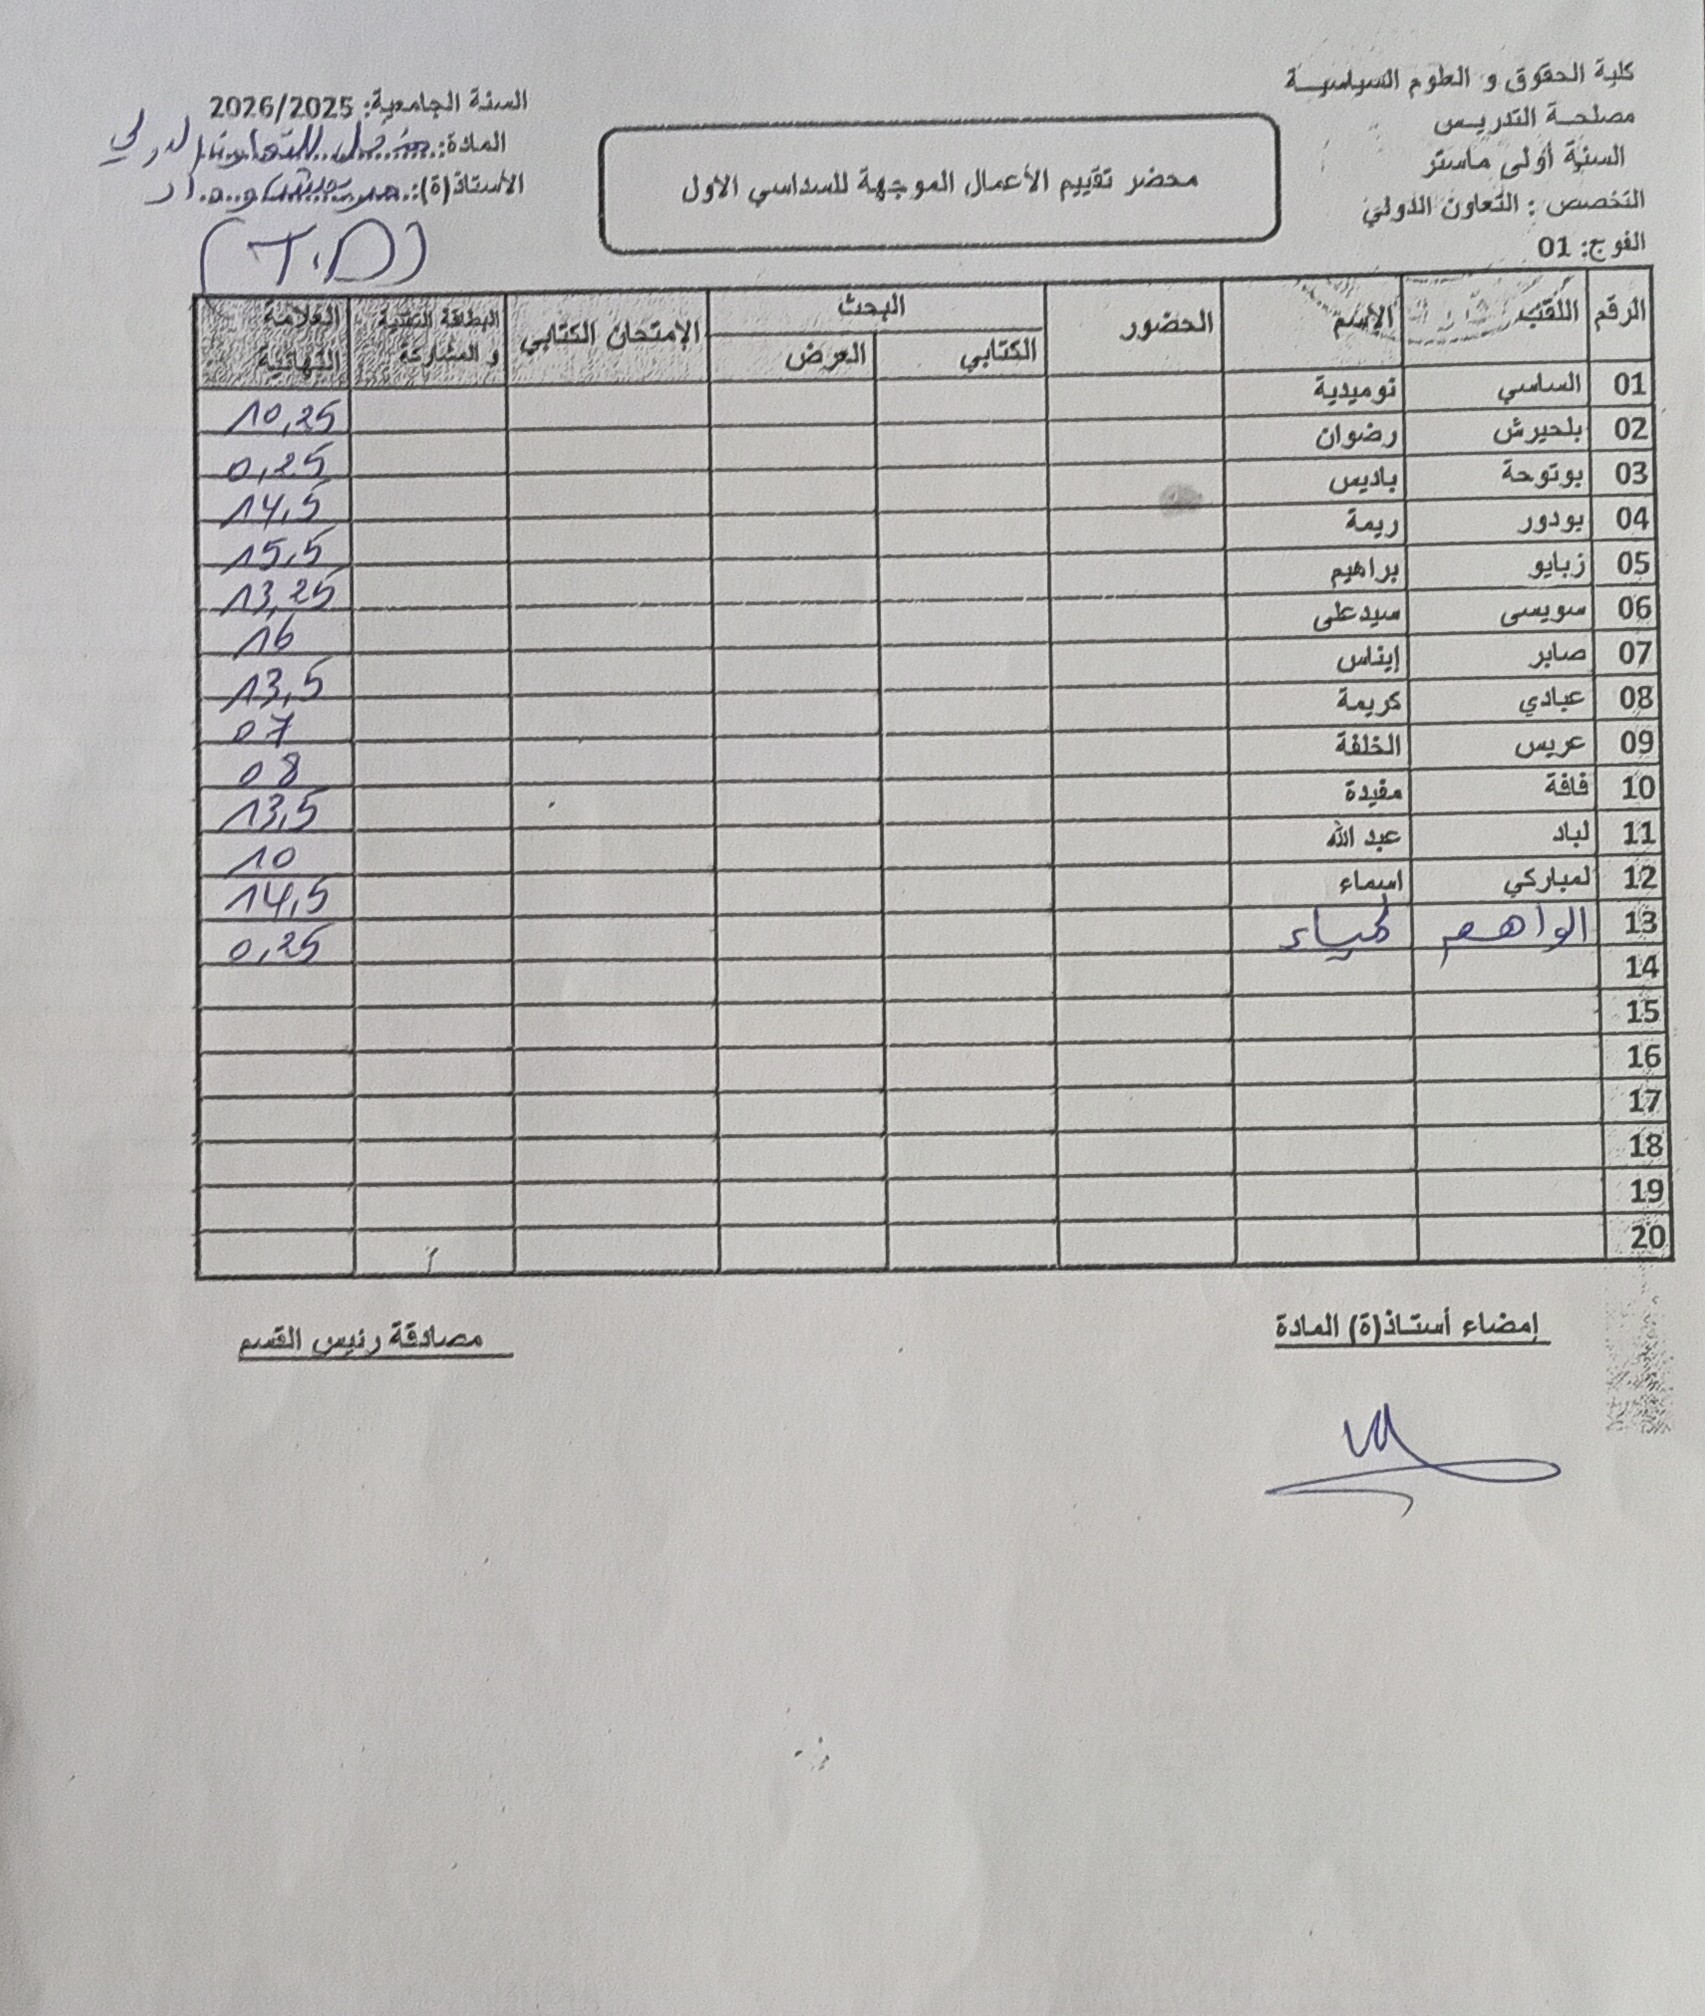 كلية الحقوق و العلوم السياسية
مصلحة التدريس
السنة أولى ماستر
التخصص : التعاون الدولي
الفوج: 01
محضر تقييم الأعمال الموجهة للسداسي الاول
السنة الجامعية: 2026/2025
المادة: مدخل للتعاون الدولي
الأستاذ(ة):
(T.D)
الرقم اللقب الإسم الحضور البحث الإمتحان الكتابي البطاقة التقنية و المشاركة العلامة النهائية
الكتابي العرض
01 الساسي نوميدية 10,25
02 بلحيرش رضوان 0,25
03 بوتوحة باديس 14,5
04 بودور ريمة 15,5
05 زبايو براهيم 13,25
06 سويسى سيدعلى 16
07 صابر إيناس 13,5
08 عبادي كريمة 07
09 عريس الخلفة 08
10 فافة مفيدة 13,5
11 لباد عبد الله 10
12 لمباركي اسماء 14,5
13 الواهم لمياء 0,25
14
15
16
17
18
19
20
إمضاء أستاذ(ة) المادة
مصادقة رئيس القسم